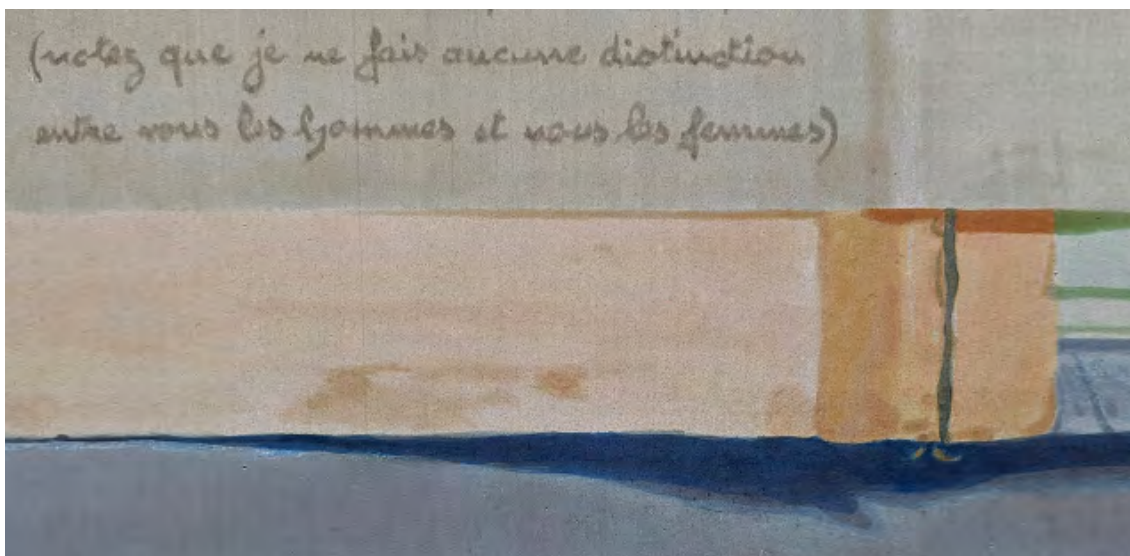 (notez que je ne fais aucune distinction
entre vous les hommes et vous les femmes)